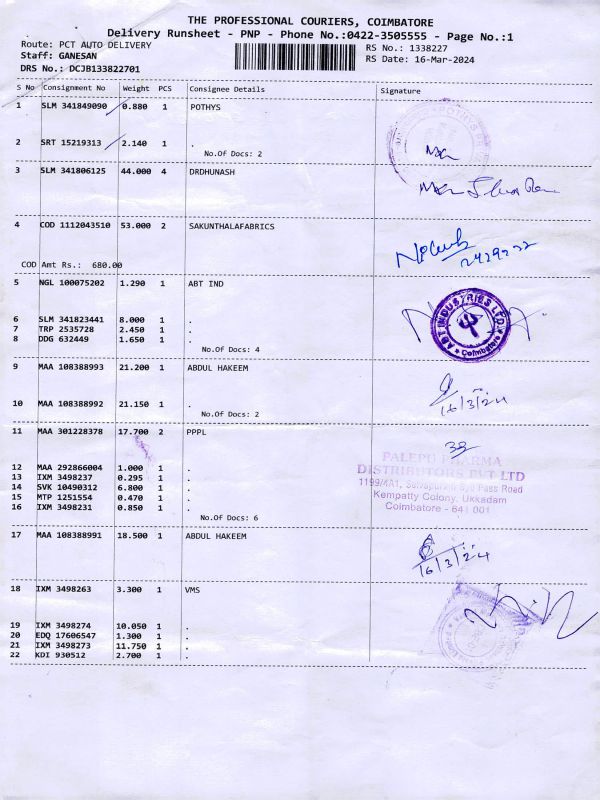 THE PROFESSIONAL COURIERS, COIMBATORE
Delivery Runsheet - PNP - Phone No.:0422-3505555 - Page No.:1
Route: PCT AUTO DELIVERY
RS No.: 1338227
Staff: GANESAN
RS Date: 16-Mar-2024
DRS No.: DCJB133822701
S No Consignment No Weight PCS Consignee Details Signature
1 SLM 341849090 0.880 1 POTHYS
POTHYS
2 SRT 15219313 2.140 1 .
No.Of Docs: 2
3 SLM 341806125 44.000 4 DRDHUNASH
4 COD 1112043510 53.000 2 SAKUNTHALAFABRICS
COD Amt Rs.: 680.00
5 NGL 100075202 1.290 1 ABT IND
ABT INDUSTRIES LTD.
* Coimbatore *
6 SLM 341823441 8.000 1 .
7 TRP 2535728 2.450 1 .
8 DDG 632449 1.650 1 .
No.Of Docs: 4
9 MAA 108388993 21.200 1 ABDUL HAKEEM
16/3/24
10 MAA 108388992 21.150 1 .
No.Of Docs: 2
11 MAA 301228378 17.700 2 PPPL
PALEPU PHARMA
DISTRIBUTORS PVT LTD
1199/4A1, Selvapuram Bye Pass Road
Kempatty Colony, Ukkadam
Coimbatore - 641 001
12 MAA 292866004 1.000 1 .
13 IXM 3498237 0.295 1 .
14 SVK 10490312 6.800 1 .
15 MTP 1251554 0.470 1 .
16 IXM 3498231 0.850 1 .
No.Of Docs: 6
17 MAA 108388991 18.500 1 ABDUL HAKEEM
16/3/24
18 IXM 3498263 3.300 1 VMS
19 IXM 3498274 10.050 1 .
20 EDQ 17606547 1.300 1 .
21 IXM 3498273 11.750 1 .
22 KDI 930512 2.700 1 .